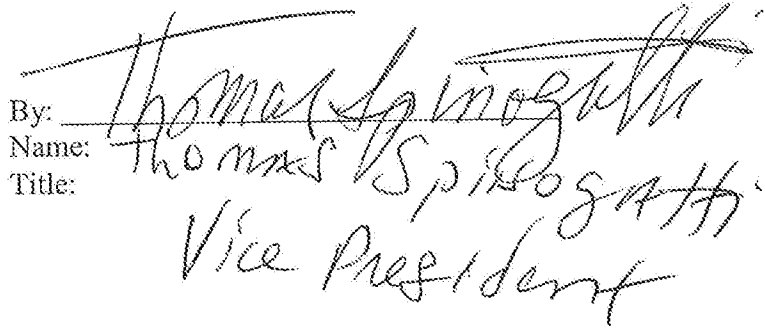 By: Thomas Spinogatti
Name: Thomas Spinogatti
Title:
Vice President